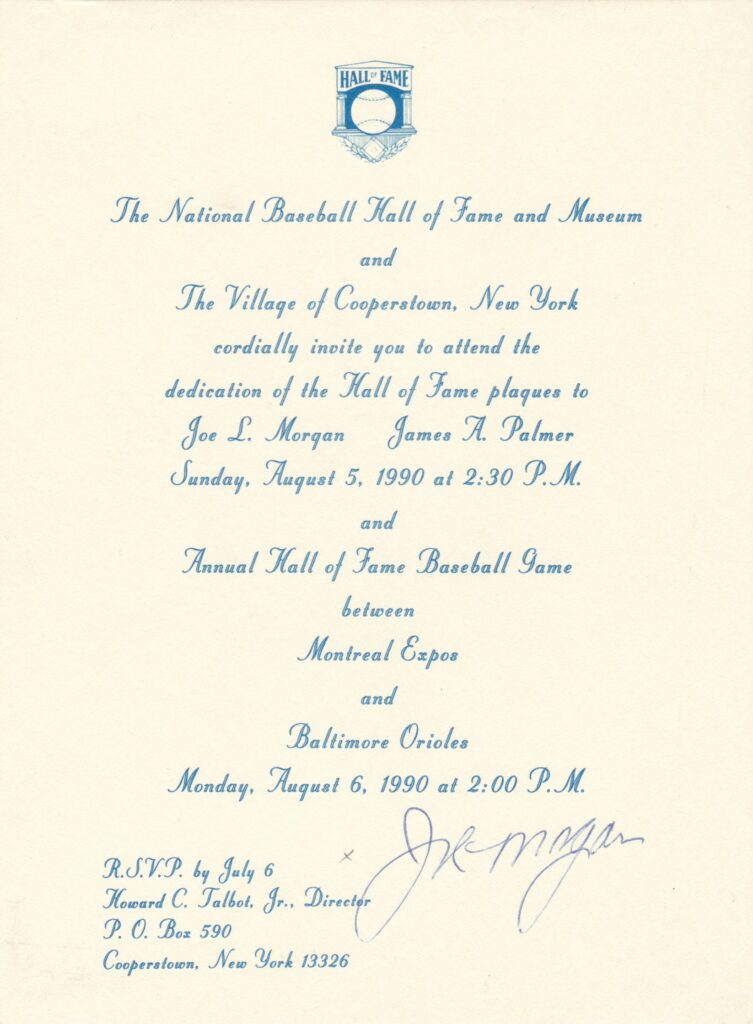 HALL OF FAME
The National Baseball Hall of Fame and Museum
and
The Village of Cooperstown, New York
cordially invite you to attend the
dedication of the Hall of Fame plaques to
Joe L. Morgan James A. Palmer
Sunday, August 5, 1990 at 2:30 P.M.
and
Annual Hall of Fame Baseball Game
between
Montreal Expos
and
Baltimore Orioles
Monday, August 6, 1990 at 2:00 P.M.
x Joe Morgan
R.S.V.P. by July 6
Howard C. Talbot, Jr., Director
P. O. Box 590
Cooperstown, New York 13326